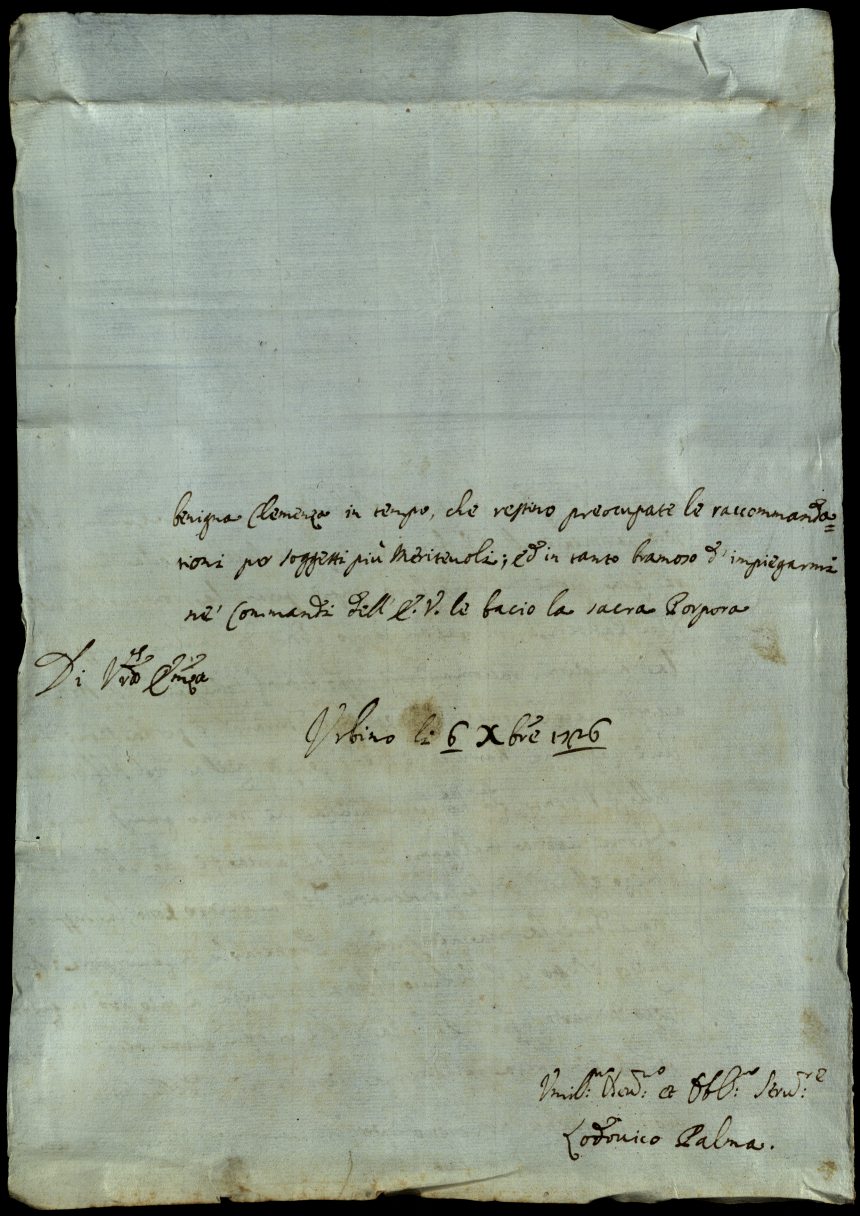 benigna Clemenza in tempo, che restino preocupate le raccommanda=
tioni per soggetti più Meritevoli; ed in tanto bramoso d'impiegarmi
ne' Commandi dell'E. V. le bacio la sacra Porpora
Di Vr̃a Em̃za
Urbino li 6 Xbre 1726
Umil.mo Dev.mo et Obb.mo Serv.re
Lodovico Palma.